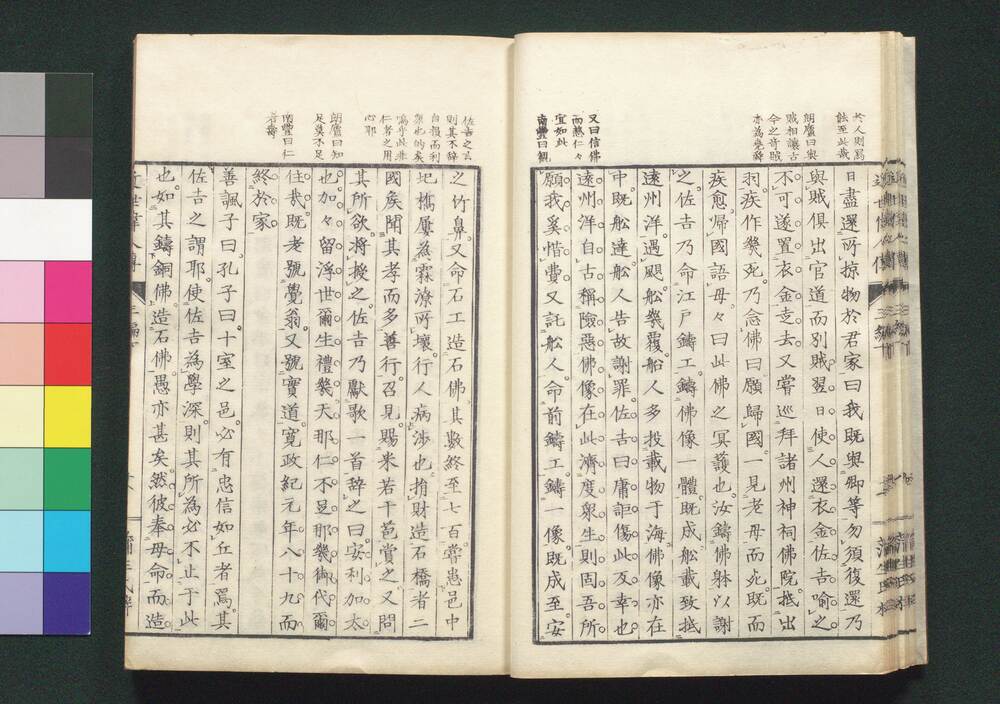 日盡還所掠物於君家曰我既與卿等勿須復還乃
與賊俱出官道而別賊翌日使人還衣金佐吉喻之
不可遂置衣金走去又嘗巡拜諸州神祠佛院抵出
羽疾作幾死乃念佛曰願歸國一見老母而死既而
疾愈歸國語母々曰此佛之冥護也汝鑄佛躰以謝
之佐吉乃命江戸鑄工鑄佛像一體既成舩載致抵
遠州洋遇颶舩幾覆船人多投載物于海佛像亦在
中既舩達舩人告故謝罪佐吉曰庸詎傷此反幸也
遠州洋自古稱險惡佛像在此濟度衆生則固吾所
願我奚惜費又託舩人命前鑄工鑄一像既成至安
之竹鼻又命石工造石佛其數終至七百嘗患邑中
圯橋屢爲霖潦所壞行人病渉也捐財造石橋者二
國矦聞其孝而多善行召見賜米若干苞賞之又問
其所欲將授之佐吉乃獻歌一首辭之曰安利加太
也加々留浮世爾生禮幾天那仁不足那幾御代爾
住哉既老號覺翁又號實道寛政紀元年八十九而
終於家
善諷子曰孔子曰十室之邑必有忠信如丘者焉其
佐吉之謂耶使佐吉為學深則其所為必不止于此
也如其鑄銅佛造石佛愚亦甚矣然彼奉母命而造
於人則寫
誌至此哉
朗廬曰與
賊相讓古
今之奇賊
亦為感歸
又曰信佛
而熱仁々
宜如此
南豐曰觀
佐吉之言
則其不辭
自損而利
衆也的矣
嗚乎此非
仁者之用
心耶
朗廬曰知
足莫不足
南豐曰仁
者壽